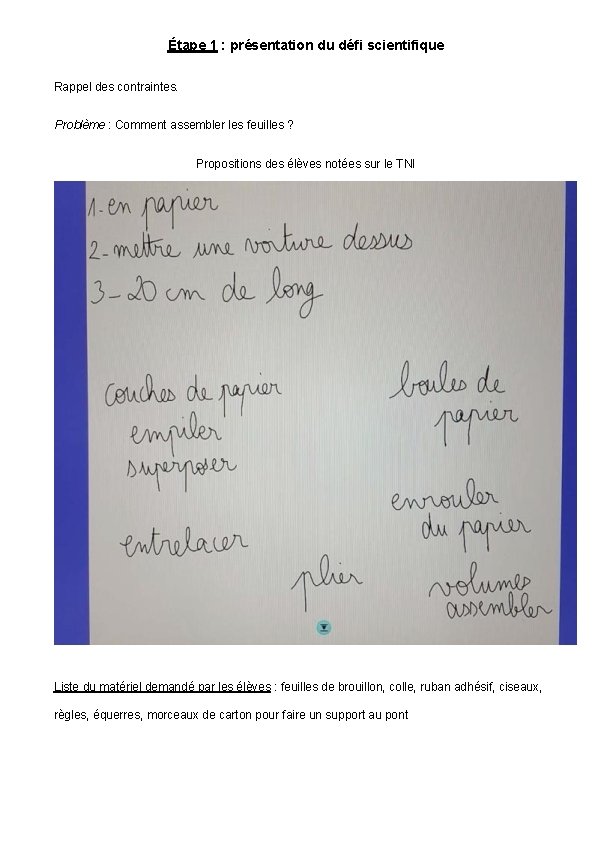 Étape 1 : présentation du défi scientifique
Rappel des contraintes.
Problème : Comment assembler les feuilles ?
Propositions des élèves notées sur le TNI
1-en papier
2-mettre une voiture dessus
3-20 cm de long
couches de papier
empiler
superposer
entrelacer
plier
boules de
papier
enrouler
du papier
volumes
assembler
Liste du matériel demandé par les élèves : feuilles de brouillon, colle, ruban adhésif, ciseaux,
règles, équerres, morceaux de carton pour faire un support au pont